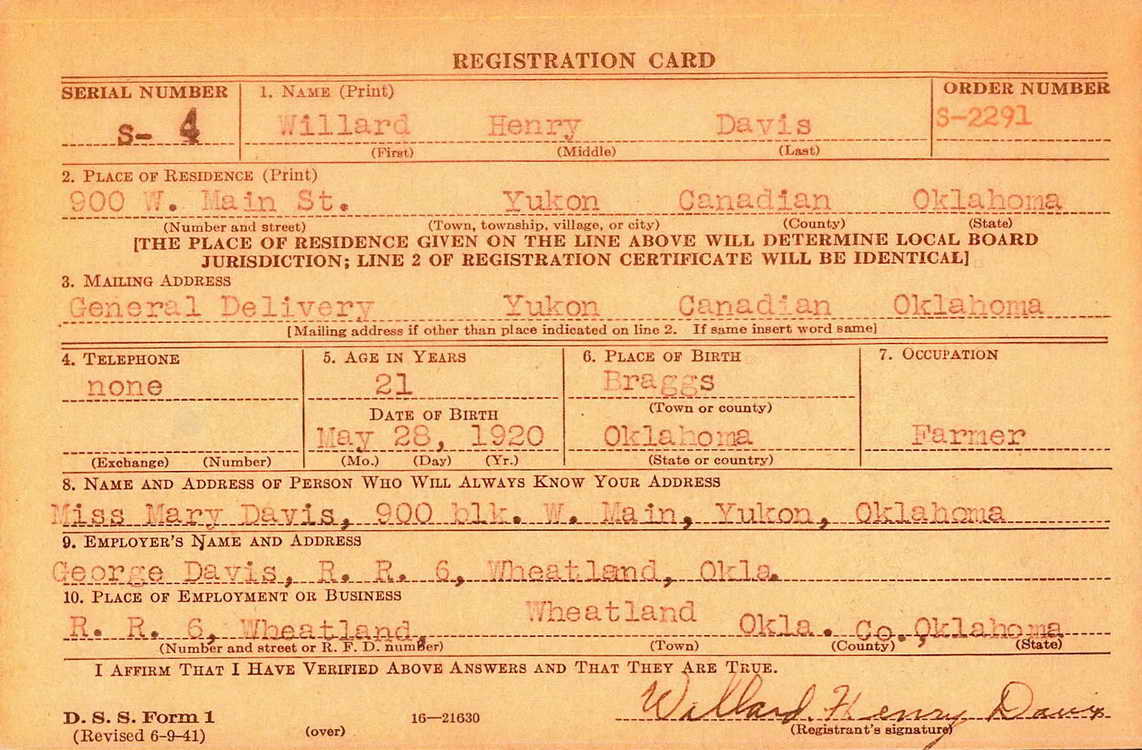 REGISTRATION CARD
SERIAL NUMBER 1. NAME (Print) ORDER NUMBER
S- 4 Willard Henry Davis S-2291
(First) (Middle) (Last)
2. PLACE OF RESIDENCE (Print)
900 W. Main St. Yukon Canadian Oklahoma
(Number and street) (Town, township, village, or city) (County) (State)
[THE PLACE OF RESIDENCE GIVEN ON THE LINE ABOVE WILL DETERMINE LOCAL BOARD
JURISDICTION; LINE 2 OF REGISTRATION CERTIFICATE WILL BE IDENTICAL]
3. MAILING ADDRESS
General Delivery Yukon Canadian Oklahoma
[Mailing address if other than place indicated on line 2. If same insert word same]
4. TELEPHONE 5. AGE IN YEARS 6. PLACE OF BIRTH 7. OCCUPATION
none 21 Braggs
DATE OF BIRTH (Town or county)
May 28, 1920 Oklahoma Farmer
(Exchange) (Number) (Mo.) (Day) (Yr.) (State or country)
8. NAME AND ADDRESS OF PERSON WHO WILL ALWAYS KNOW YOUR ADDRESS
Miss Mary Davis, 900 blk. W. Main, Yukon, Oklahoma
9. EMPLOYER'S NAME AND ADDRESS
George Davis, R. R. 6, Wheatland, Okla.
10. PLACE OF EMPLOYMENT OR BUSINESS
R. R. 6, Wheatland, Wheatland Okla. Co. Oklahoma
(Number and street or R. F. D. number) (Town) (County) (State)
I AFFIRM THAT I HAVE VERIFIED ABOVE ANSWERS AND THAT THEY ARE TRUE.
Willard Henry Davis
D. S. S. Form 1 16—21630
(Revised 6-9-41) (over) (Registrant's signature)